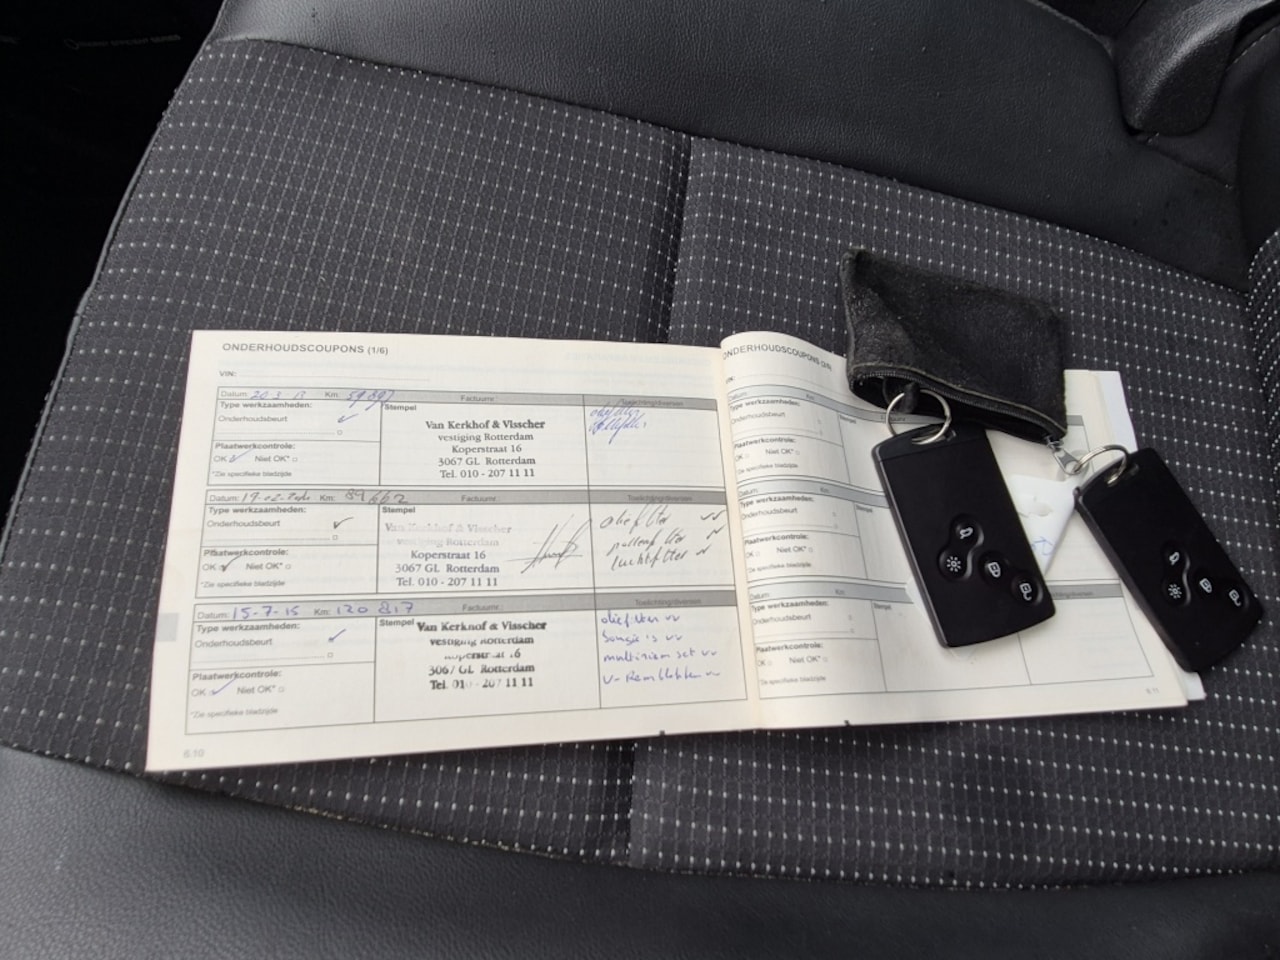 ONDERHOUDSCOUPONS (1/6)
VIN:
Datum: 20 3 Km: 59697 Factuurnr.
Type werkzaamheden:
Onderhoudsbeurt
Plaatwerkcontrole:
OK Niet OK*
*Zie specifieke bladzijde
Stempel
Van Kerkhof & Visscher
vestiging Rotterdam
Koperstraat 16
3067 GL Rotterdam
Tel. 010 - 207 11 11
Toelichting/diversen
oliefilter
Datum: 19-02- Km: 89662 Factuurnr.
Type werkzaamheden:
Onderhoudsbeurt
Plaatwerkcontrole:
OK Niet OK*
*Zie specifieke bladzijde
Stempel
Van Kerkhof & Visscher
vestiging Rotterdam
Koperstraat 16
3067 GL Rotterdam
Tel. 010 - 207 11 11
Toelichting/diversen
oliefilter
pollenfilter
luchtfilter
Datum: 15-7-15 Km: 120 817 Factuurnr.
Type werkzaamheden:
Onderhoudsbeurt
Plaatwerkcontrole:
OK Niet OK*
*Zie specifieke bladzijde
Stempel
Van Kerkhof & Visscher
vestiging Rotterdam
Koperstraat 16
3067 GL Rotterdam
Tel. 010 - 207 11 11
Toelichting/diversen
oliefilter
bougie's
multiriem set
V-Remblokken
6.10
ONDERHOUDSCOUPONS (2/6)
VIN:
Datum: Km:
Type werkzaamheden:
Onderhoudsbeurt
Plaatwerkcontrole:
OK Niet OK*
*Zie specifieke bladzijde
Stempel
Datum: Km:
Type werkzaamheden:
Onderhoudsbeurt
Plaatwerkcontrole:
OK Niet OK*
*Zie specifieke bladzijde
Stempel
Datum: Km:
Type werkzaamheden:
Onderhoudsbeurt
Plaatwerkcontrole:
OK Niet OK*
*Zie specifieke bladzijde
Stempel
6.11